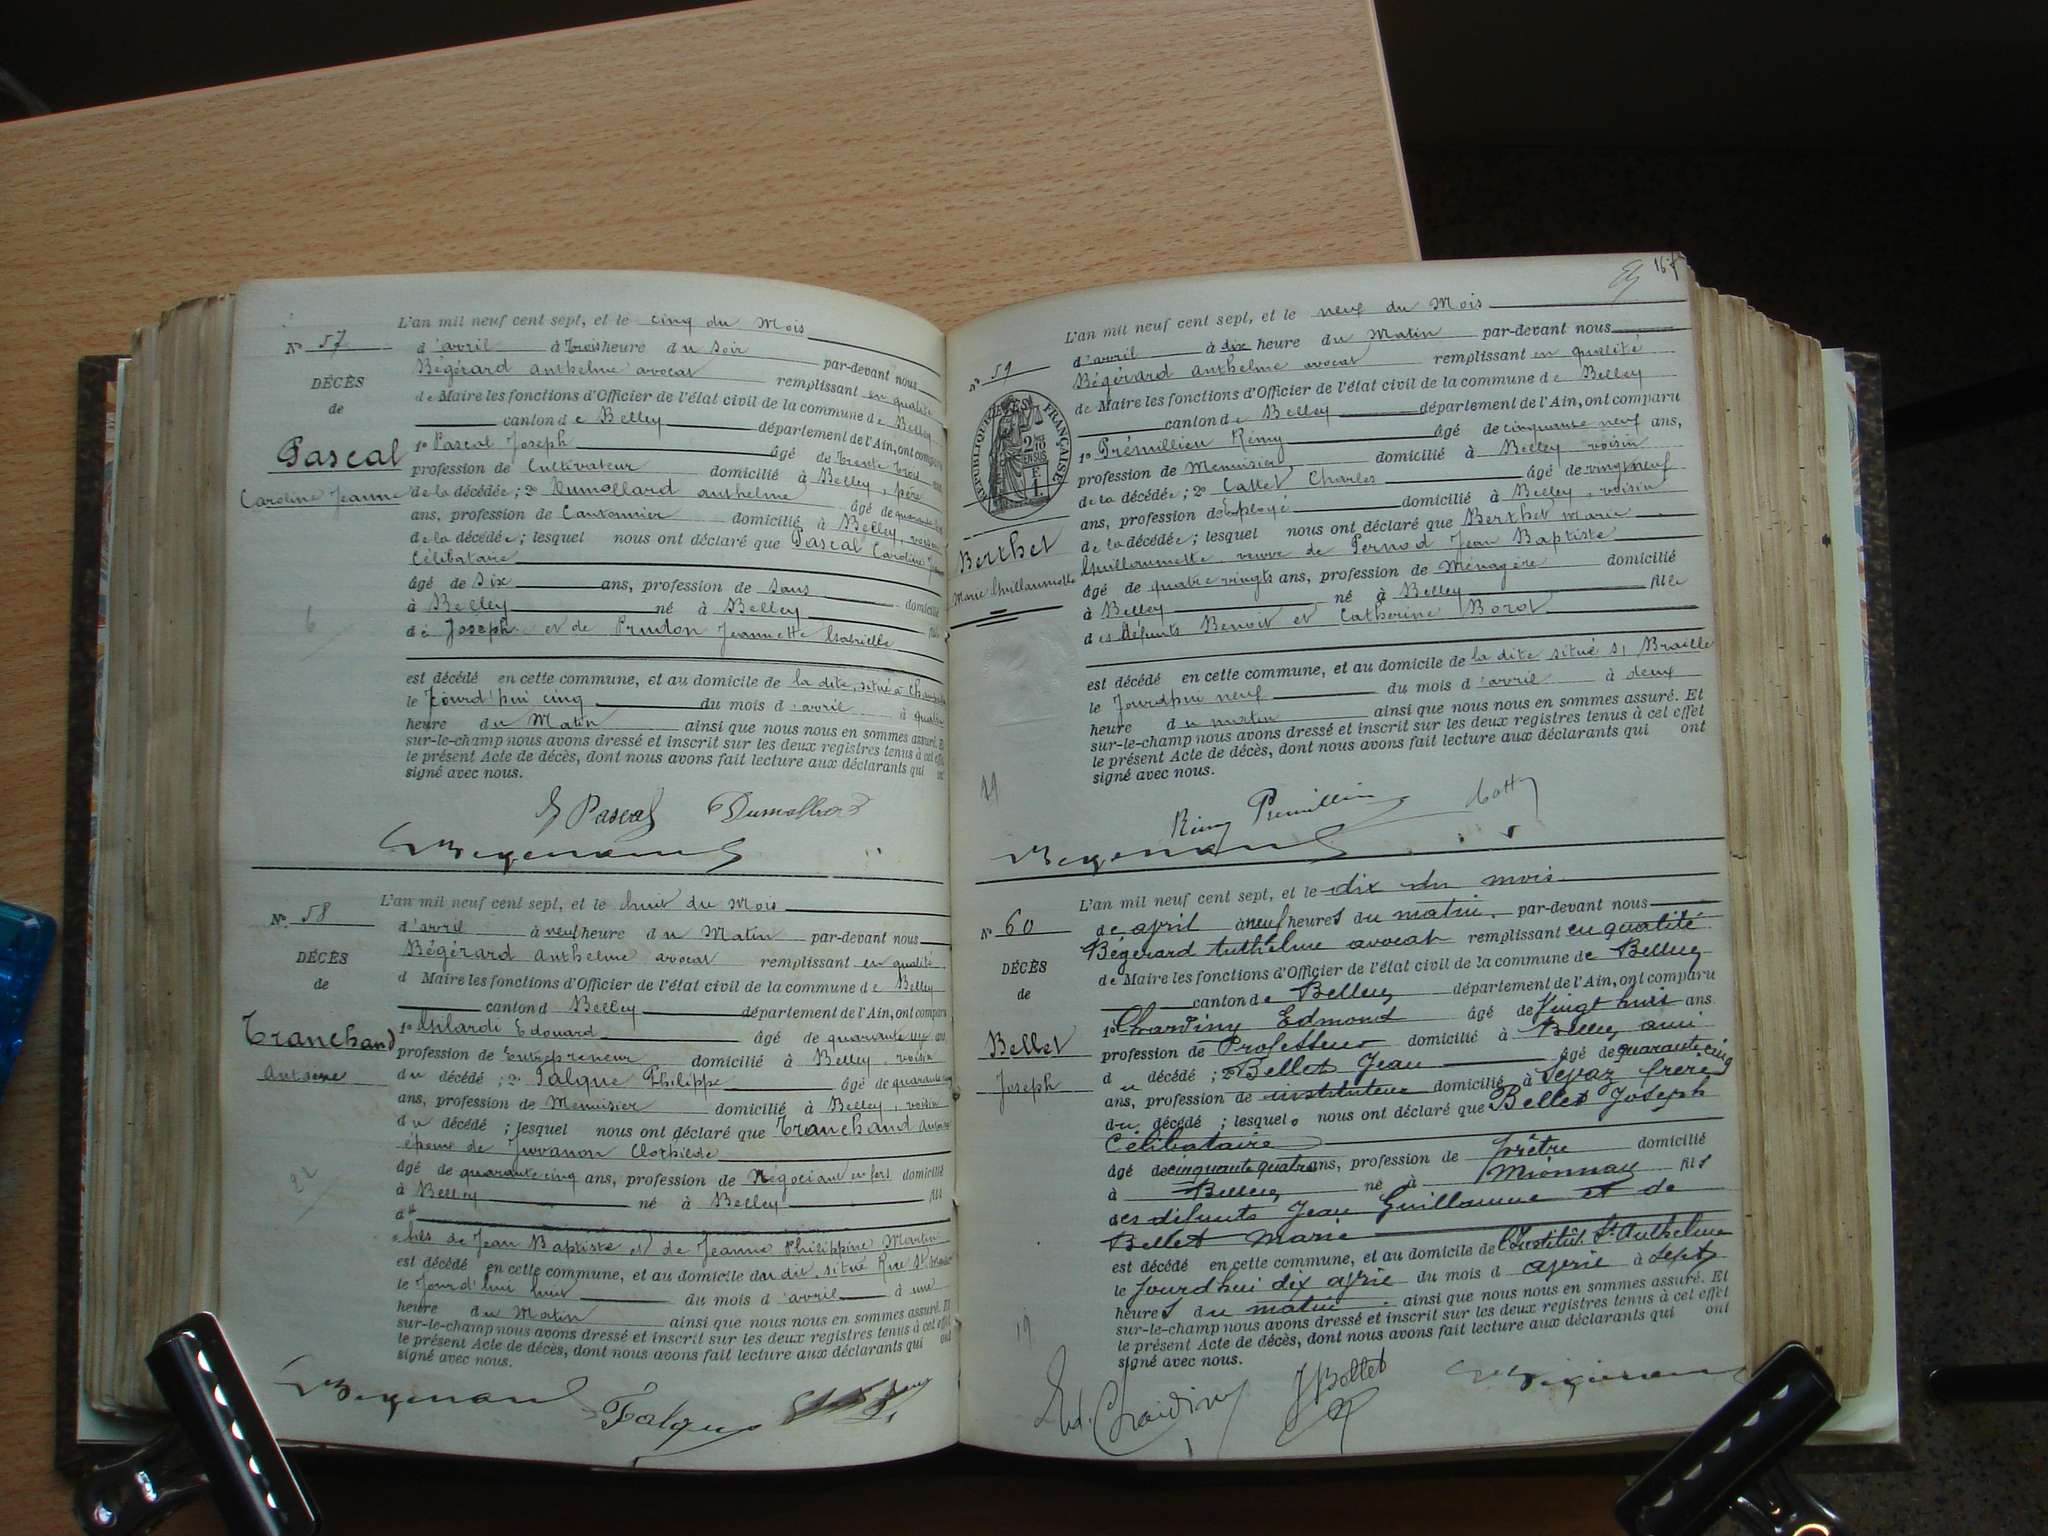 L'an mil neuf cent sept, et le cinq du Mois
N° 57
d'avril à trois heure du Soir par-devant nous
Bégérard Anthelme avocat remplissant en qualité
DÉCÈS
de Maire les fonctions d'Officier de l'état civil de la commune de Belley
de
canton de Belley département de l'Ain, ont comparu
Pascal
1° Pascal Joseph âgé de trente trois ans,
profession de Cultivateur domicilié à Belley, père
Caroline Jeanne
de la décédée; 2° Dumollard Anthelme âgé de quarante
ans, profession de Cantonnier domicilié à Belley, voisin
de la décédée; lesquel nous ont déclaré que Pascal Caroline Jeanne
Célibataire
âgé de Six ans, profession de Sans domicilié
à Belley né à Belley
6
de Joseph et de Prudon Jeannette Gabrielle
est décédé en cette commune, et au domicile de la dite, situé à
le Jourd'hui cinq du mois d'avril à quatre
heure du Matin ainsi que nous nous en sommes assuré. Et
sur-le-champ nous avons dressé et inscrit sur les deux registres tenus à cet effet
le présent Acte de décès, dont nous avons fait lecture aux déclarants qui ont
signé avec nous.
Pascal Dumollard
Bégérard
L'an mil neuf cent sept, et le huit du Mois
N° 58
d'avril à neuf heure du Matin par-devant nous
Bégérard Anthelme avocat remplissant en qualité
DÉCÈS
d Maire les fonctions d'Officier de l'état civil de la commune de Belley
de
canton d Belley département de l'Ain, ont comparu
Tranchand
1° Gilardi Edouard âgé de quarante six ans,
profession de Entrepreneur domicilié à Belley, voisin
Antoine
du décédé; 2° Falque Philippe âgé de quarante cinq
ans, profession de Menuisier domicilié à Belley, voisin
du décédé; lesquel nous ont déclaré que Tranchand Antoine
époux de Juvanon Clothilde
âgé de quarante cinq ans, profession de Négociant en fers domicilié
à Belley né à Belley fil
22
d
fils de Jean Baptiste et de Jeanne Philippine Martin
est décédé en cette commune, et au domicile du dit, situé Rue St
le Jourd'hui huit du mois d'avril à une
heure du Matin ainsi que nous nous en sommes assuré. Et
sur-le-champ nous avons dressé et inscrit sur les deux registres tenus à cet effet
le présent Acte de décès, dont nous avons fait lecture aux déclarants qui ont
signé avec nous.
Bégérard Falque
167
L'an mil neuf cent sept, et le neuf du Mois
N° 59
d'avril à dix heure du Matin par-devant nous
Bégérard Anthelme avocat remplissant en qualité
de Maire les fonctions d'Officier de l'état civil de la commune de Belley
canton de Belley département de l'Ain, ont comparu
RÉPUBLIQUE FRANÇAISE
1° Prémillieu Rémy âgé de cinquante neuf ans,
profession de Menuisier domicilié à Belley voisin
de la décédée; 2° Cattet Charles âgé de vingt neuf
ans, profession d'Employé domicilié à Belley, voisin
de la décédée; lesquel nous ont déclaré que Berthet Marie
Berthet
Guillaumette veuve de Pernod Jean Baptiste
Marie Guillaumette
âgé de quatre vingts ans, profession de Ménagère domicilié
à Belley né à Belley fille
des défunts Benoit et Catherine Borot
est décédé en cette commune, et au domicile de la dite situé
le Jourd'hui neuf du mois d'avril à deux
heure du matin ainsi que nous nous en sommes assuré. Et
sur-le-champ nous avons dressé et inscrit sur les deux registres tenus à cet effet
le présent Acte de décès, dont nous avons fait lecture aux déclarants qui ont
signé avec nous.
Rémy Prémillieu
Bégérard
L'an mil neuf cent sept, et le dix du mois
N° 60
de avril à neuf heures du matin par-devant nous
Bégérard Anthelme avocat remplissant en qualité
DÉCÈS
de Maire les fonctions d'Officier de l'état civil de la commune de Belley
de
canton de Belley département de l'Ain, ont comparu
1° Chardiny Edmond âgé de Vingt huit ans.
Bellet
profession de Professeur domicilié à Belley ami
Joseph
du décédé; 2° Bellet Jean âgé de quarante cinq
ans, profession de instituteur domicilié à frère
du décédé; lesquel nous ont déclaré que Bellet Joseph
Célibataire
âgé de cinquante quatre ans, profession de prêtre domicilié
à Belley né à Mionnay fils
des défunts Jean Guillaume et de
Bellet Marie
est décédé en cette commune, et au domicile de l'Institut St Anthelme
le Jourd'hui dix avril du mois d avril à sept
19
heures du matin ainsi que nous nous en sommes assuré. Et
sur-le-champ nous avons dressé et inscrit sur les deux registres tenus à cet effet
le présent Acte de décès, dont nous avons fait lecture aux déclarants qui ont
signé avec nous.
Ed. Chardiny J Bellet Bégérard